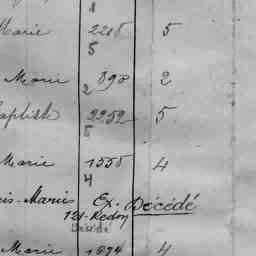 1
Marie 2218 5
5
Marie 898 2
2
Baptiste 2252 5
5
Marie 1558 4
4
is-Marie Ex. Décédé
121-Redon
Décédé
Marie 1694 4